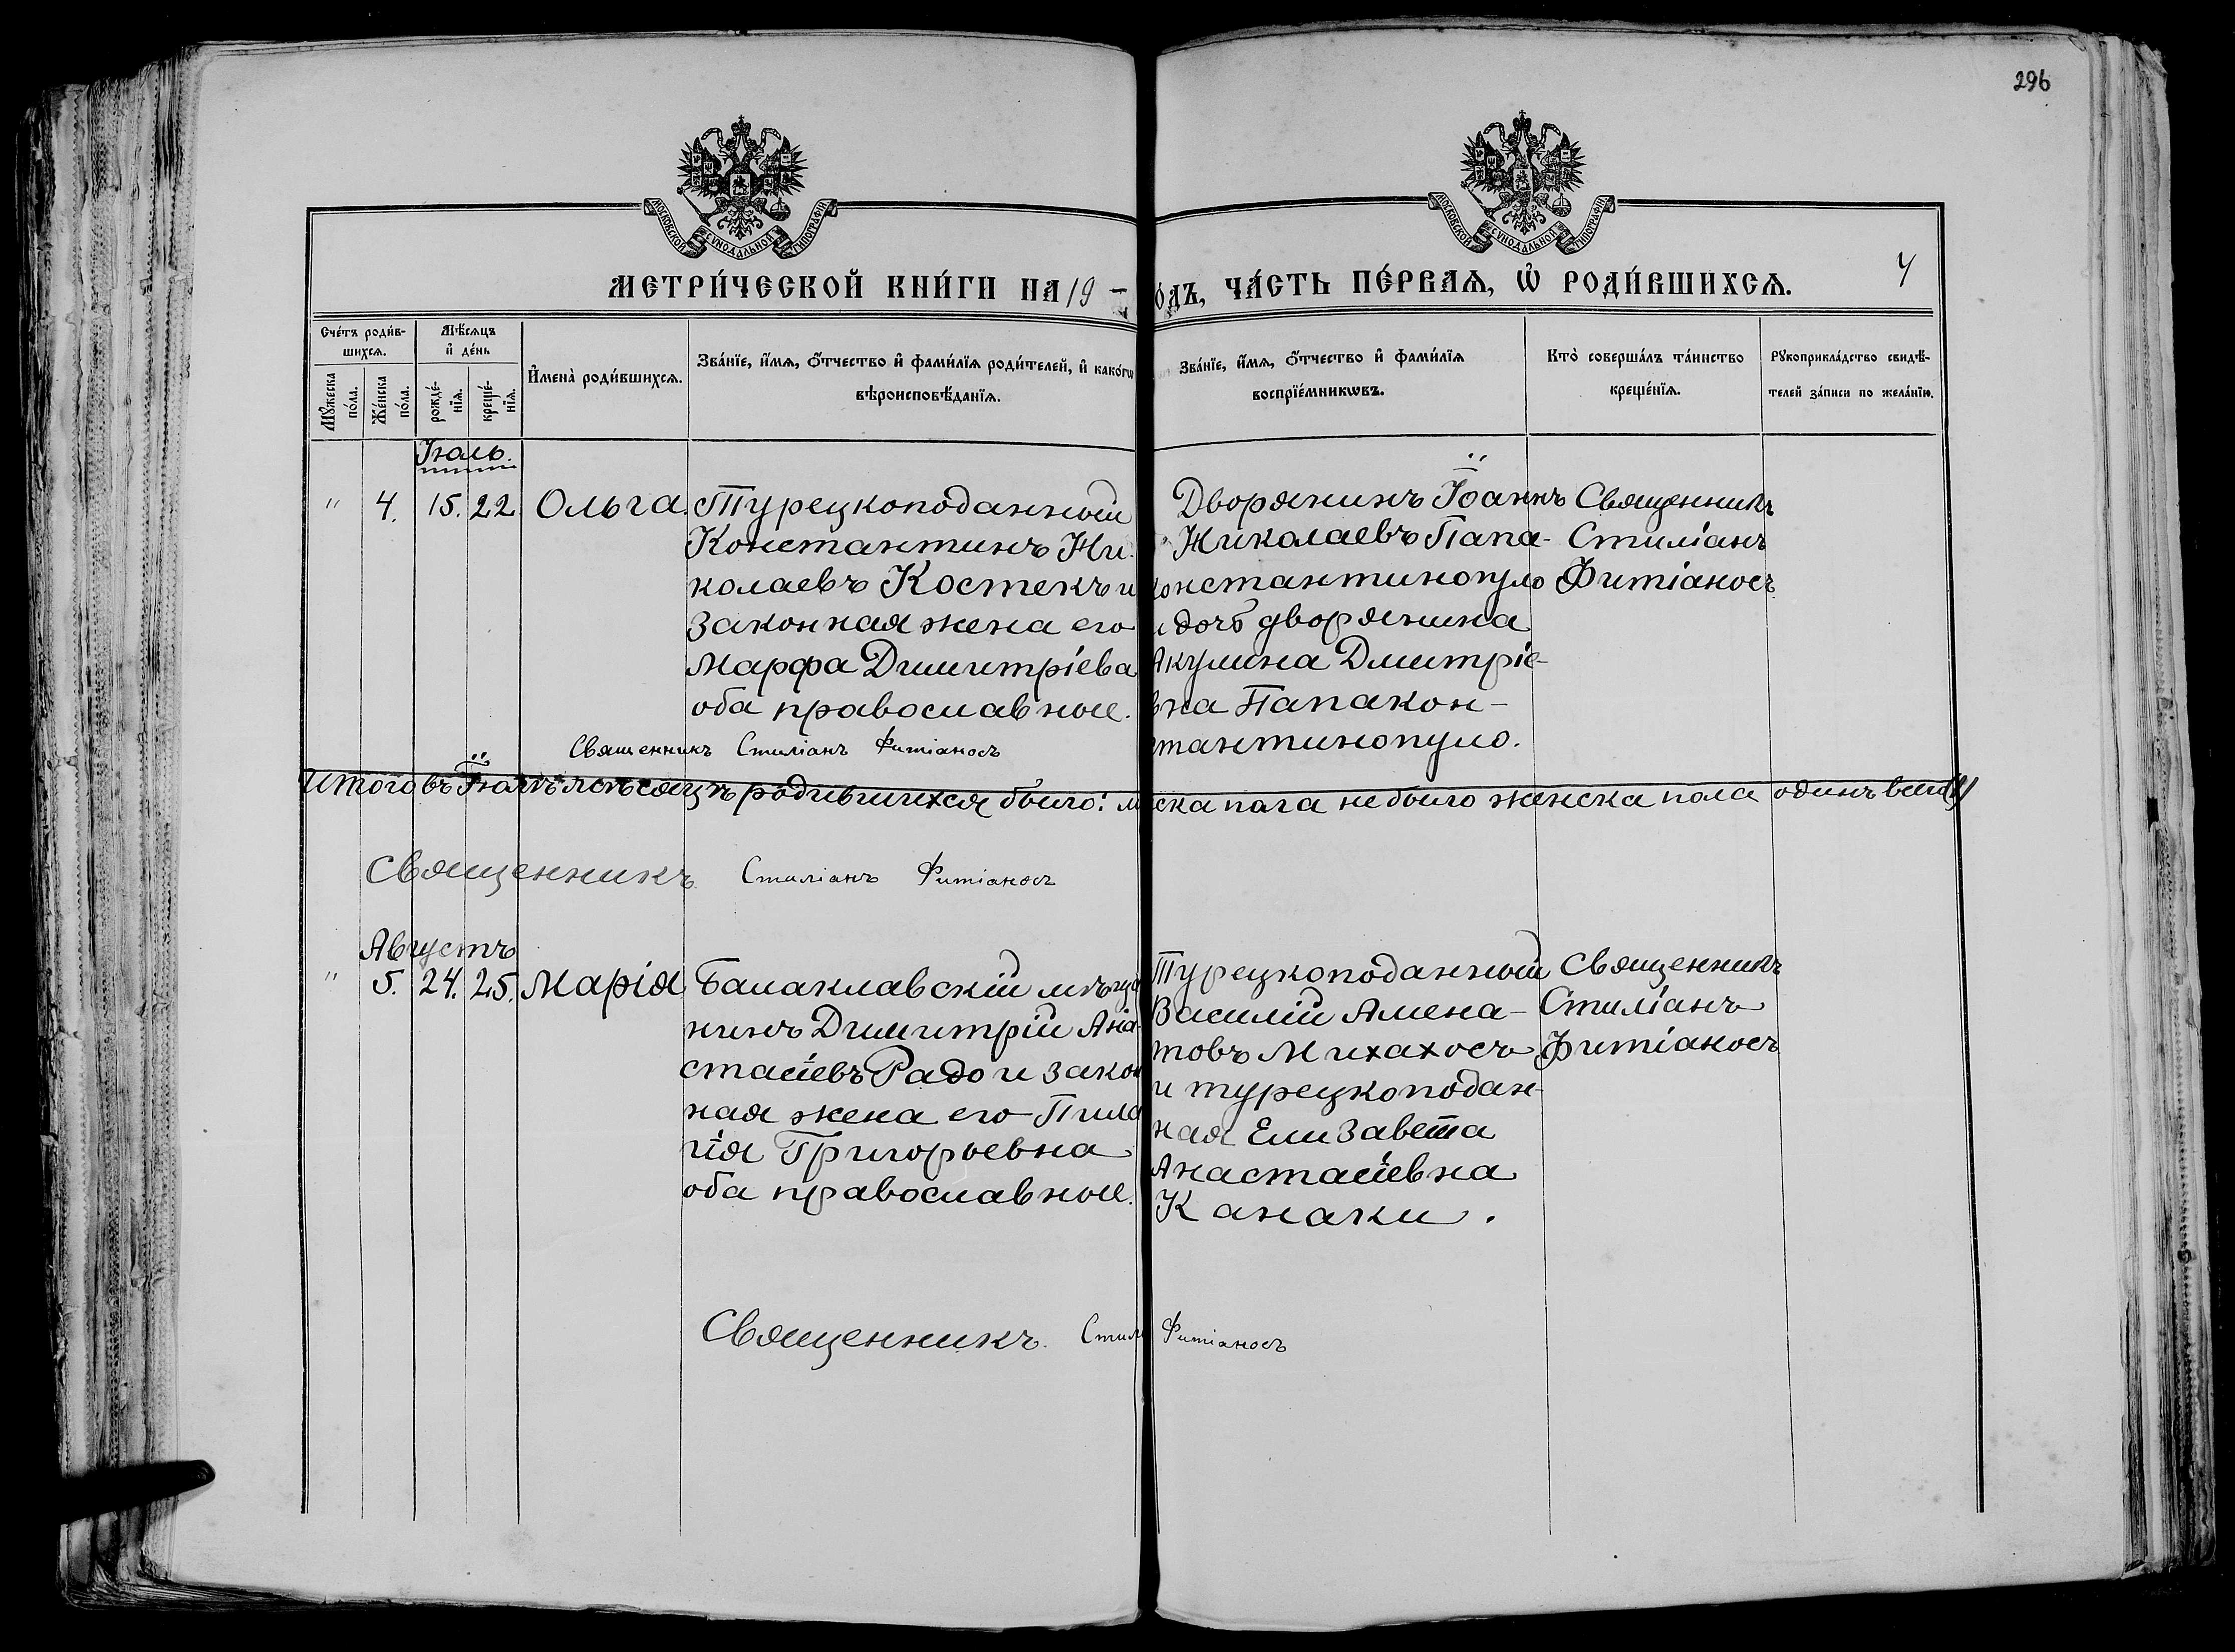 296
МОСКОВСКОЙ СѴНОДАЛЬНОЙ ТИПОГРАФІИ
МОСКОВСКОЙ СѴНОДАЛЬНОЙ ТИПОГРАФІИ
МЕТРИ́ЧЕСКОЙ КНИ́ГИ НА 19
О́ДЪ, ЧА́СТЬ ПЕ́РВАѦ, Ѡ҆ РОДИ́ВШИХСѦ.
Сче́тъ роди́в-
шихсѧ.
Мѣ́сѧцъ
и҆ де́нь
Мꙋжеска
по́ла.
Же́нска
по́ла.
рожде́-
нїѧ.
креще́-
нїѧ.
И҆мена̀ роди́вшихсѧ.
Зва́нїе, и҆́мѧ, ѻ҆́тчество и҆ фами́лїѧ роди́телей, и҆ како́гѡ
вѣроисповѣ́данїѧ.
Зва́нїе, и҆́мѧ, ѻ҆́тчество и҆ фами́лїѧ
воспрїе́мникѡвъ.
Кто̀ соверша́лъ та́инство
креще́нїѧ.
Рꙋкоприкла́дство свидѣ́-
телей за́писи по жела́нїю.
Іюль.
" 4. 15. 22 Ольга. Турецкоподанный
Константинъ Ни-
колаевъ Костекъ и
законная жена его
Марфа Димитріева
оба православные.
Священникъ Стиліанъ Фитіаносъ
Дворянинъ Іоаннъ
Николаевъ Папа-
константинопуло
и дочь дворянина
Акулина Дмитріе-
вна Папакон-
стантинопуло.
Священникъ
Стиліанъ
Фитіаносъ
Итого въ Іюлѣ мѣсяцѣ родившихся было: м ска пола не было женска пола одинъ всего (1)
Священникъ Стиліанъ Фитіаносъ
Августъ
" 5. 24. 25. Марія Балаклавскій мѣща
нинъ Димитрій Ана-
стасіевъ Радо и закон
ная жена его Пила
гія Григорьевна
оба православные.
Турецкоподанный
Василій Амена-
товъ Михахосъ
и турецкоподан-
ная Елизавета
Анастасіевна
Канаки.
Священникъ
Стиліанъ
Фитіаносъ
Священникъ. Стилі Фитіаносъ